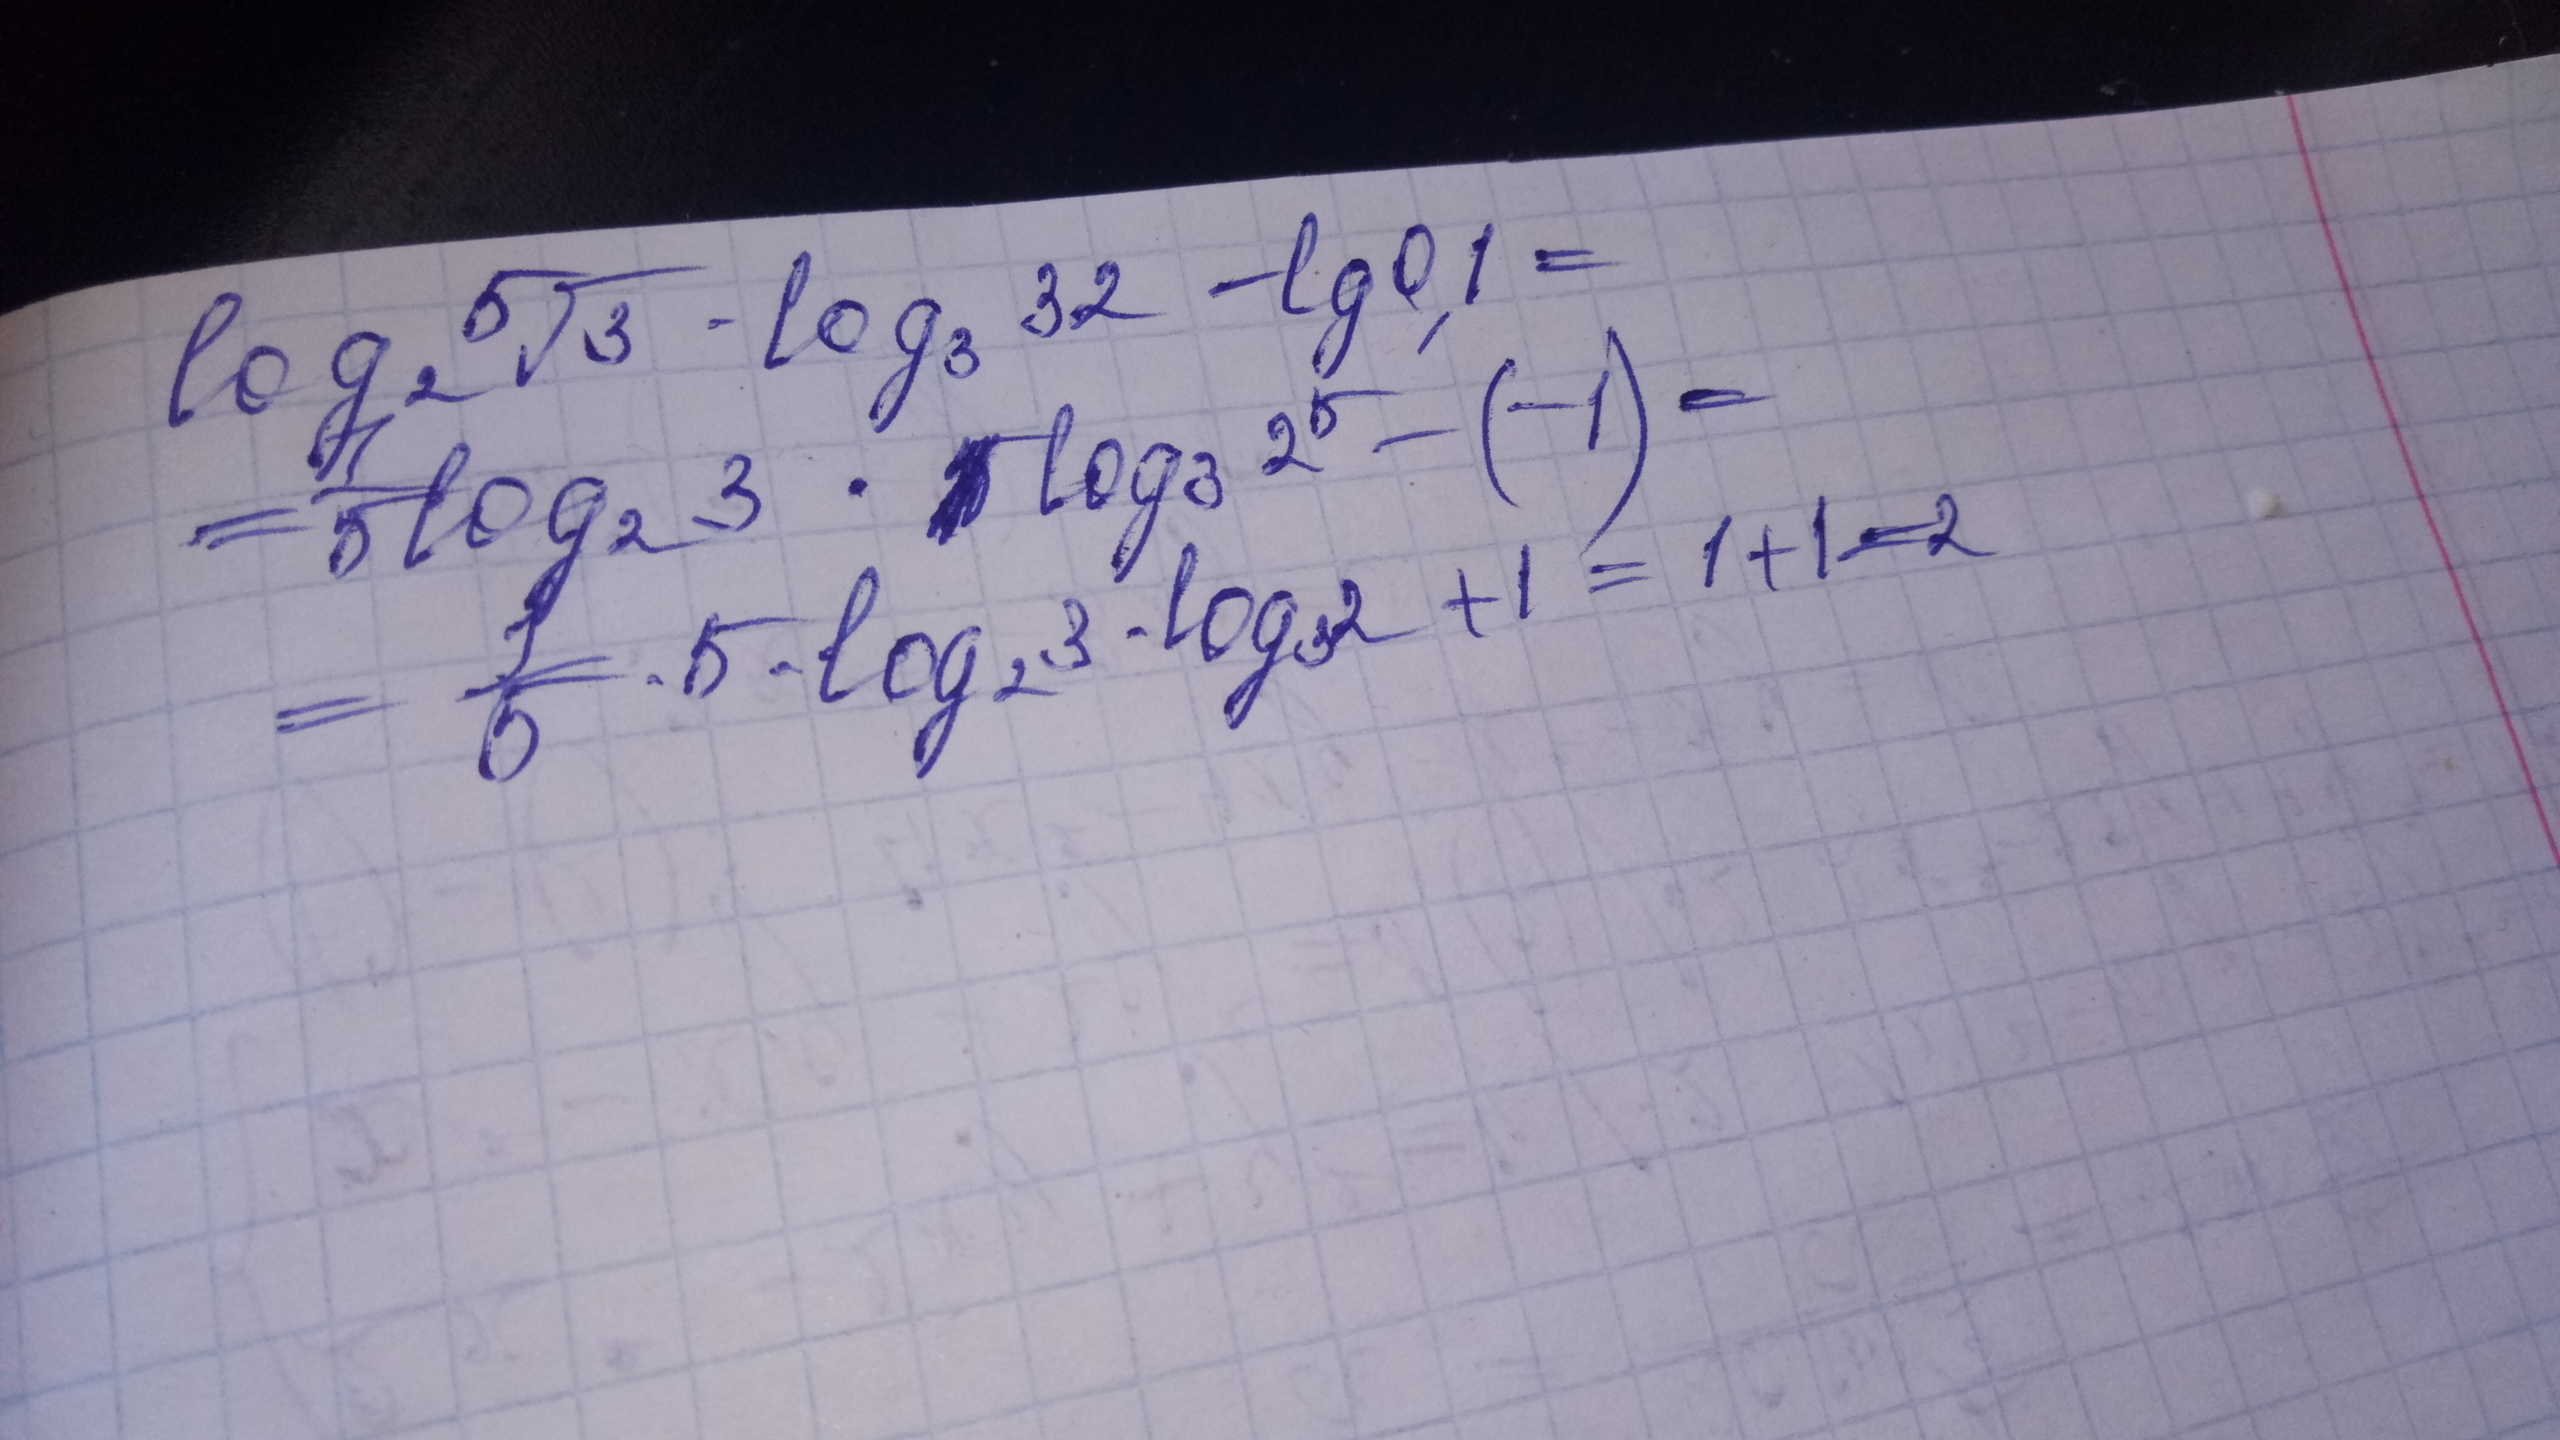 log₂ ⁵√3 · log₃ 32 - lg 0,1 =
= 1/5 log₂ 3 · log₃ 2⁵ - (-1) =
= 1/5 · 5 · log₂ 3 · log₃ 2 + 1 = 1 + 1 = 2